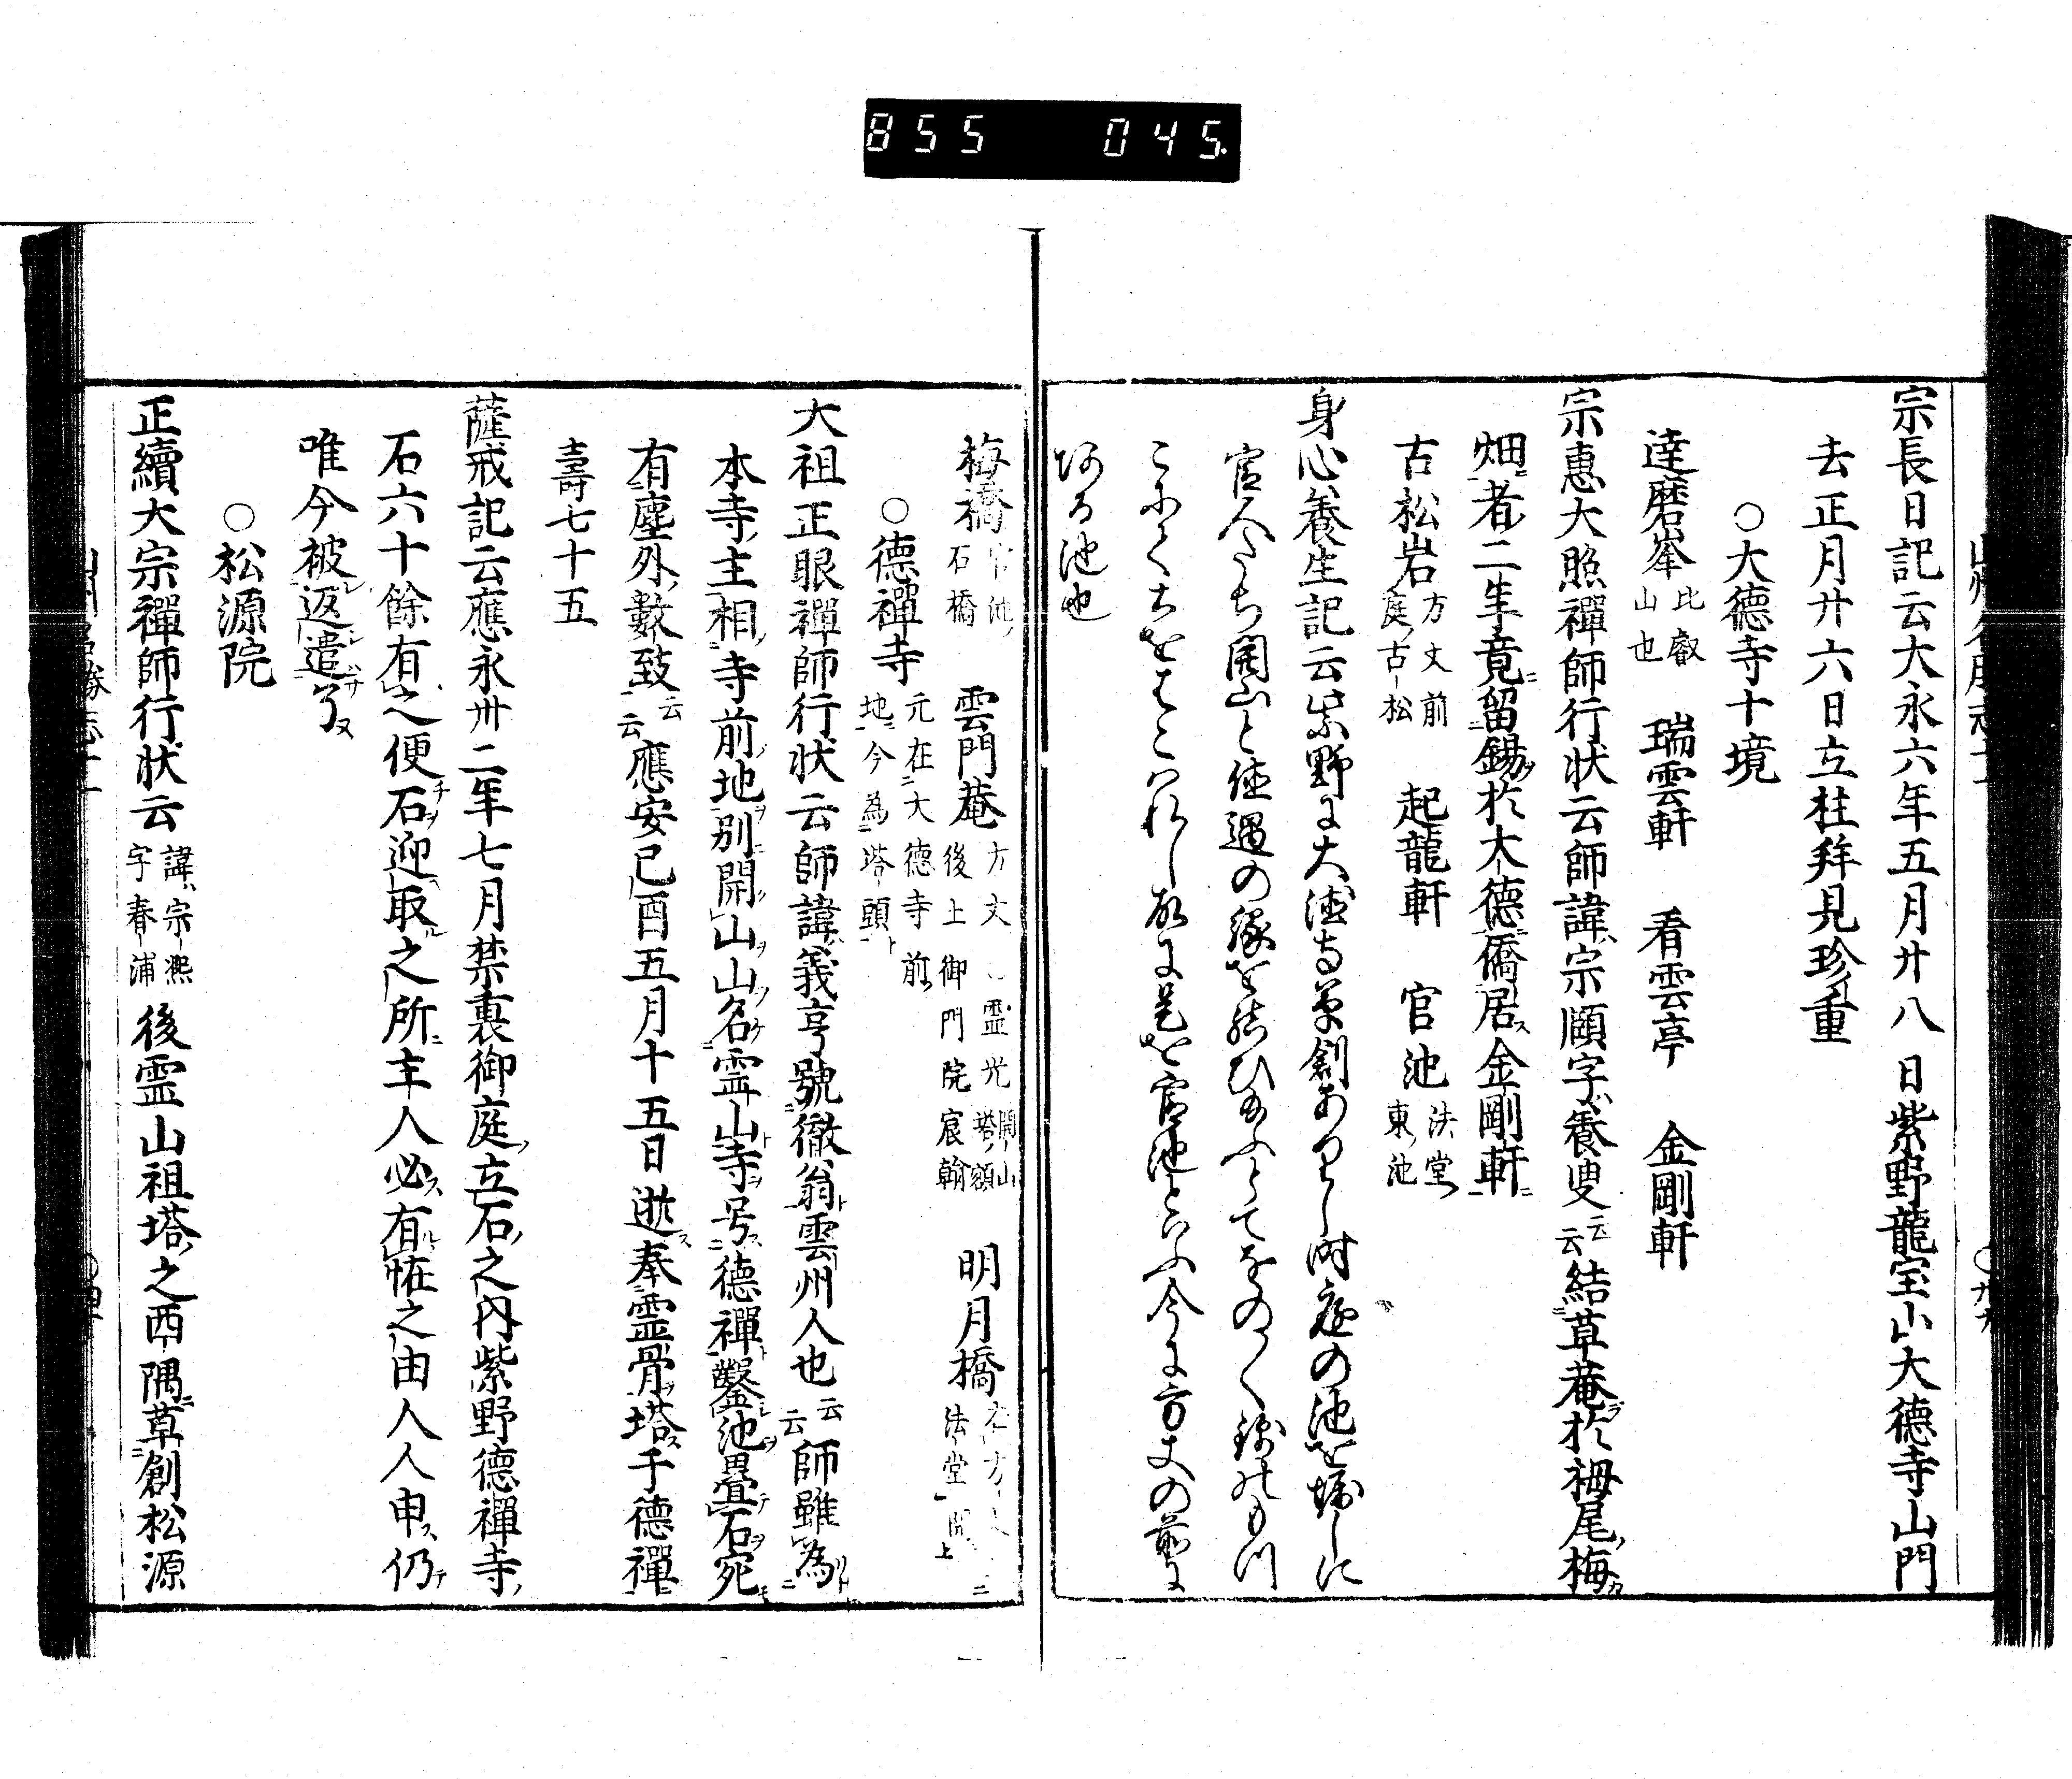 855 045
宗長日記云大永六年五月廿八日紫野龍宝山大徳寺山門
去正月廿六日立柱拜見珍重
○大徳寺十境
達磨峯 比叡山也 瑞雲軒 看雲亭 金剛軒
宗惠大照禪師行状云師諱宗頤字養叟云云結草菴於栂尾梅
畑者二年竟留錫於大德僑居金剛軒
古松岩 方丈前庭古松 起龍軒 官池 法堂東池
身心養生記云紫野に大徳寺草創ありし時庭の池を堀しに
官人たち開山と値遇の縁を結ひ給ふとてをの〱
こにて
ある池也
梅橋 官池石橋 雲門菴 方丈 霊光 開山塔額 後上御門院宸翰 明月橋 法堂
○德禪寺 元在大德寺前地今為塔頭
大祖正眼禪師行状云師諱義亨號徹翁雲州人也云云師雖為
本寺主相寺前地別開山山名霊山寺号德禪鑿池畳石宛
有塵外數致云云應安已酉五月十五日逝奉霊骨塔于德禪
壽七十五
薩戒記云應永卅二年七月禁裏御庭立石之内紫野德禪寺
石六十餘有之便石迎取之所主人必有恠之由人人申仍
唯今被返遣了
○松源院
正續大宗禪師行状云 諱宗熙字春浦 後霊山祖塔之西隅草創松源